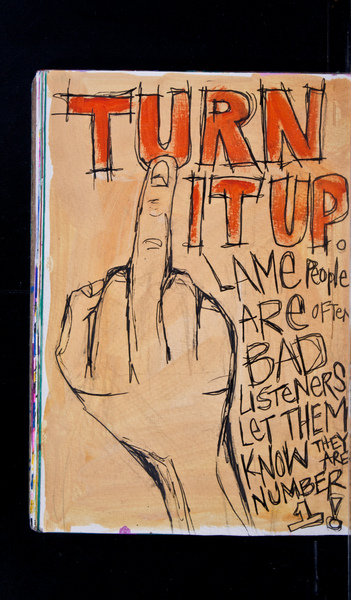 TURN
IT UP.
LAME PeoPle
ARe OFTEN
BAD
LiSTENERS
LET THEM
KNOW THEY ARE
NUMBER
1!